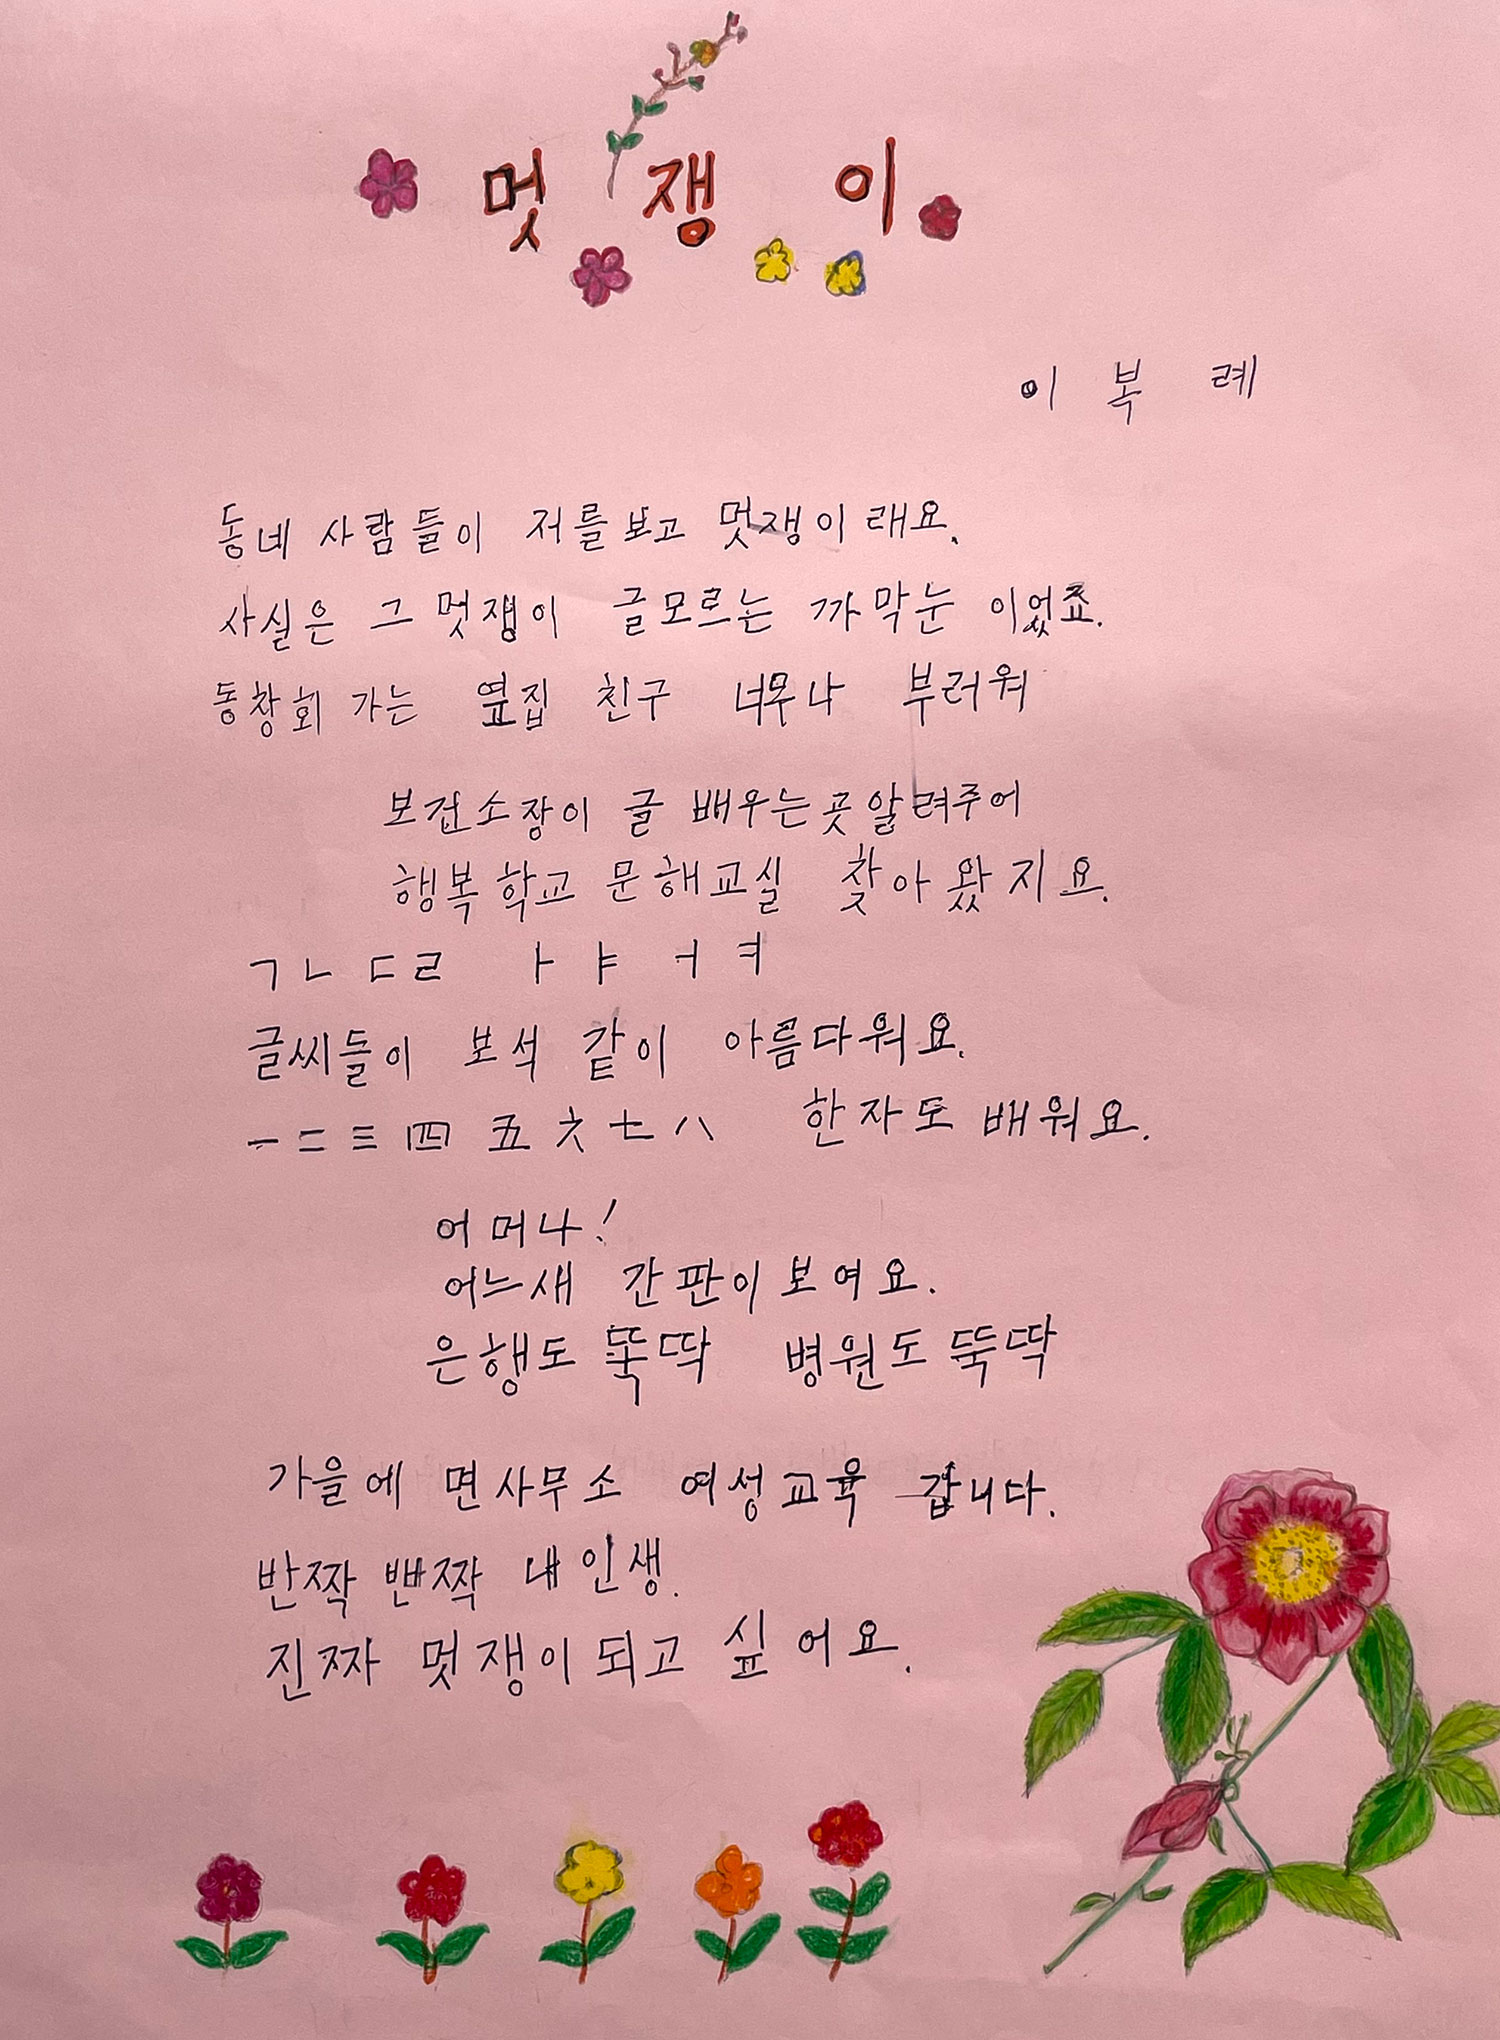 멋쟁이
이복례
동네 사람들이 저를보고 멋쟁이래요.
사실은 그 멋쟁이 글모르는 까막눈 이었죠.
동창회 가는 옆집 친구 너무나 부러워
보건소장이 글 배우는곳알려주어
행복학교 문해교실 찾아왔지요.
ㄱㄴㄷㄹ ㅏㅑㅓㅕ
글씨들이 보석 같이 아름다워요.
一二三四五六七八 한자도 배워요.
어머나!
어느새 간판이보여요.
은행도 뚝딱 병원도 뚝딱
가을에 면사무소 여성교육 갑니다.
반짝 빤짝 내인생.
진짜 멋쟁이되고 싶어요.